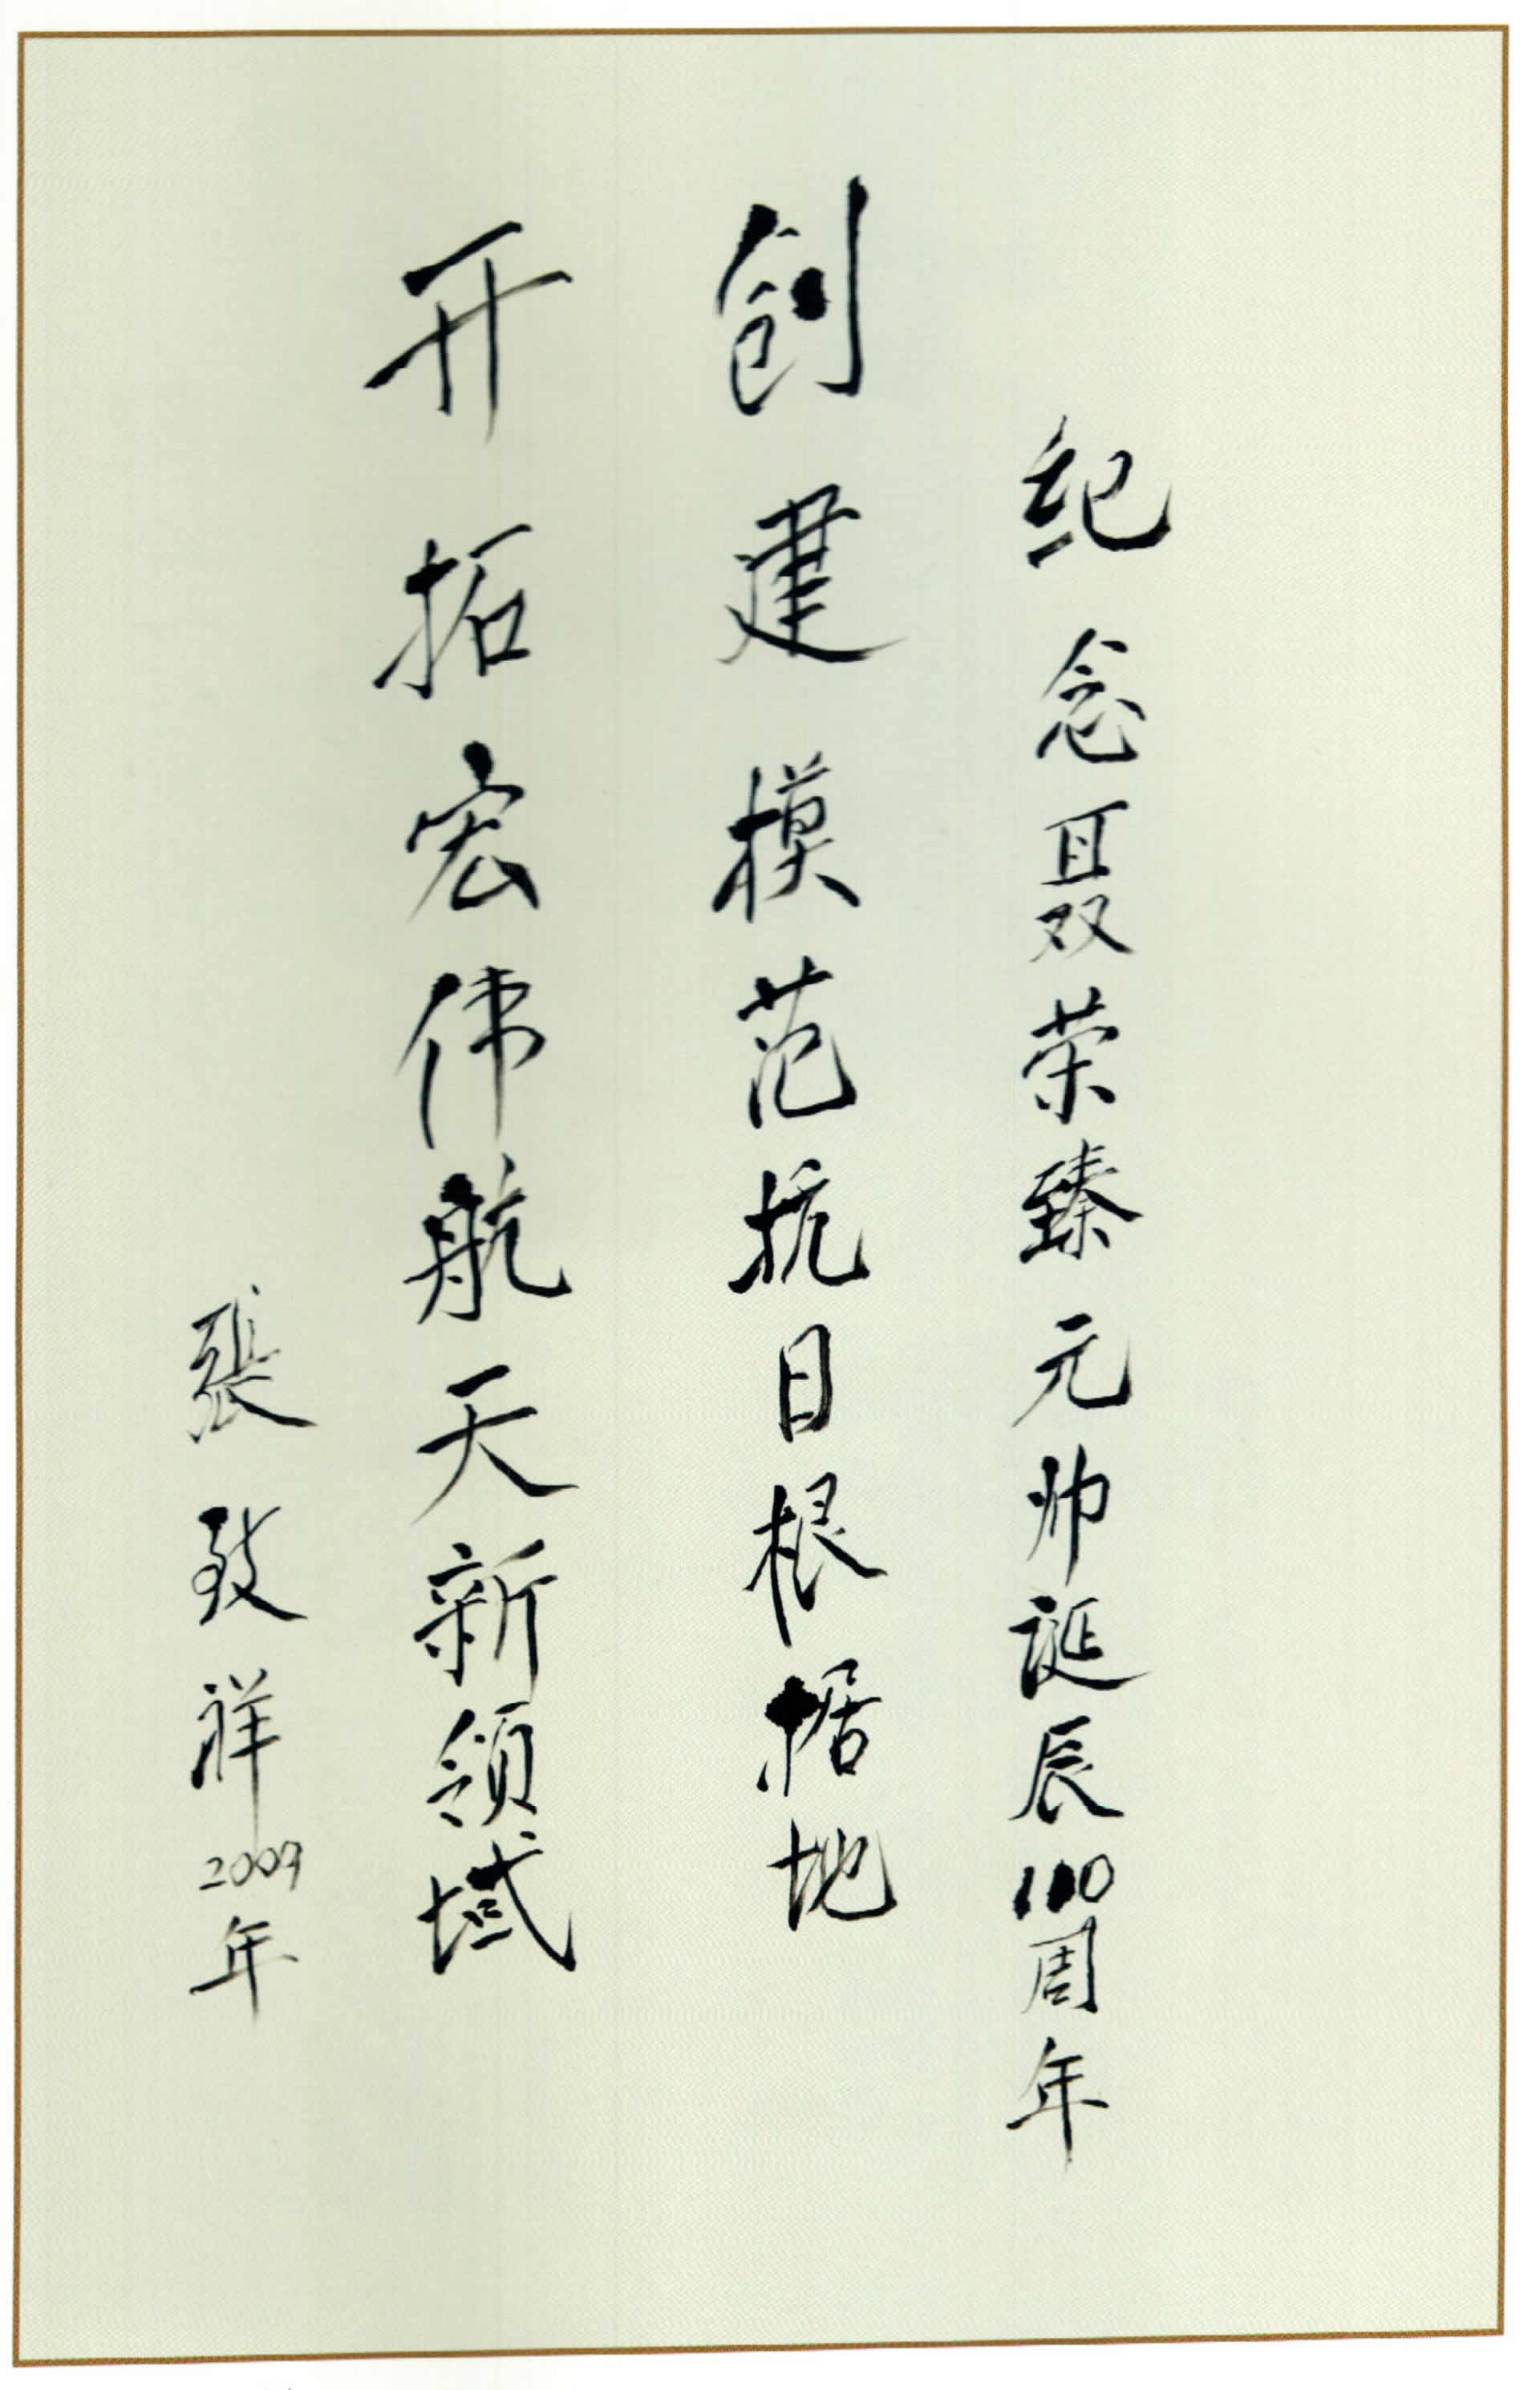 纪念聂荣臻元帅诞辰110周年
创建模范抗日根据地
开拓宏伟航天新领域
張致祥2009年